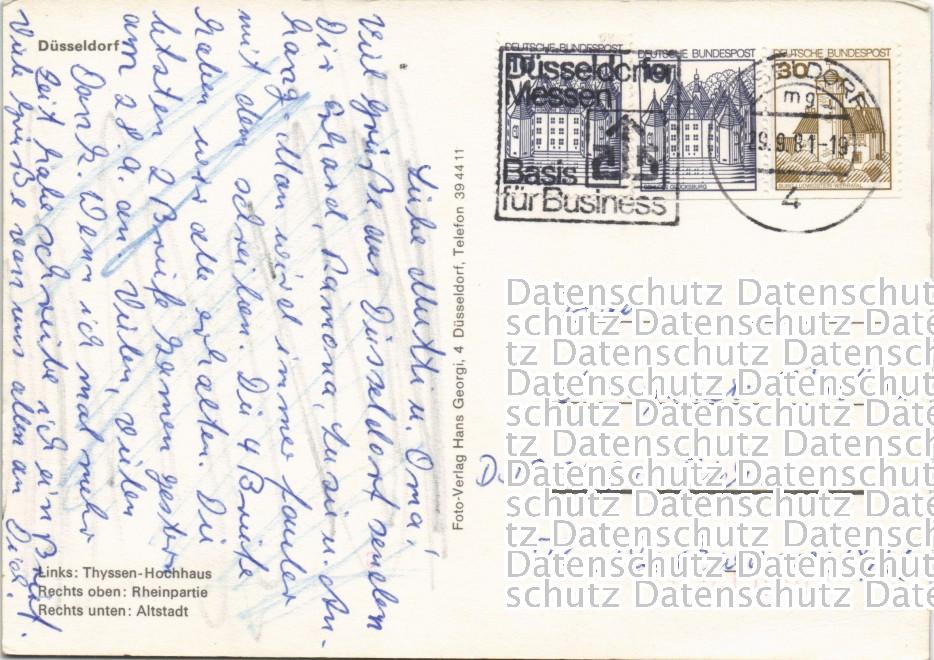 Düsseldorf
Liebe Mutti u. Oma,
Viel Grüße aus Düsseldorf senden
Dir Erhard, Ramona, Susi u.
Man wird immer fauler
mit dem schreiben. Die 4 Briefe
haben wir alle erhalten. Die
letzten 2 Briefe kamen gestern
am 28.9. an. Vielen, vielen
Dank. Wenn ich mal mehr
Zeit habe schreibe ich ein Brief.
Viele Grüße von uns allen an Dich.
Links: Thyssen-Hochhaus
Rechts oben: Rheinpartie
Rechts unten: Altstadt
Foto-Verlag Hans Georgi, 4 Düsseldorf, Telefon 39 44 11
DEUTSCHE BUNDESPOST
DEUTSCHE BUNDESPOST
DEUTSCHE BUNDESPOST
30
Düsseldorfer
Messen
Basis
für Business
29.9.81-19
mg
4
Datenschutz Datenschut
schutz Datenschutz Date
tz Datenschutz Datensch
Datenschutz Datenschut
schutz Datenschutz Date
tz Datenschutz Datensch
Datenschutz Datenschut
schutz Datenschutz Date
tz Datenschutz Datensch
Datenschutz Datenschut
schutz Datenschutz Date